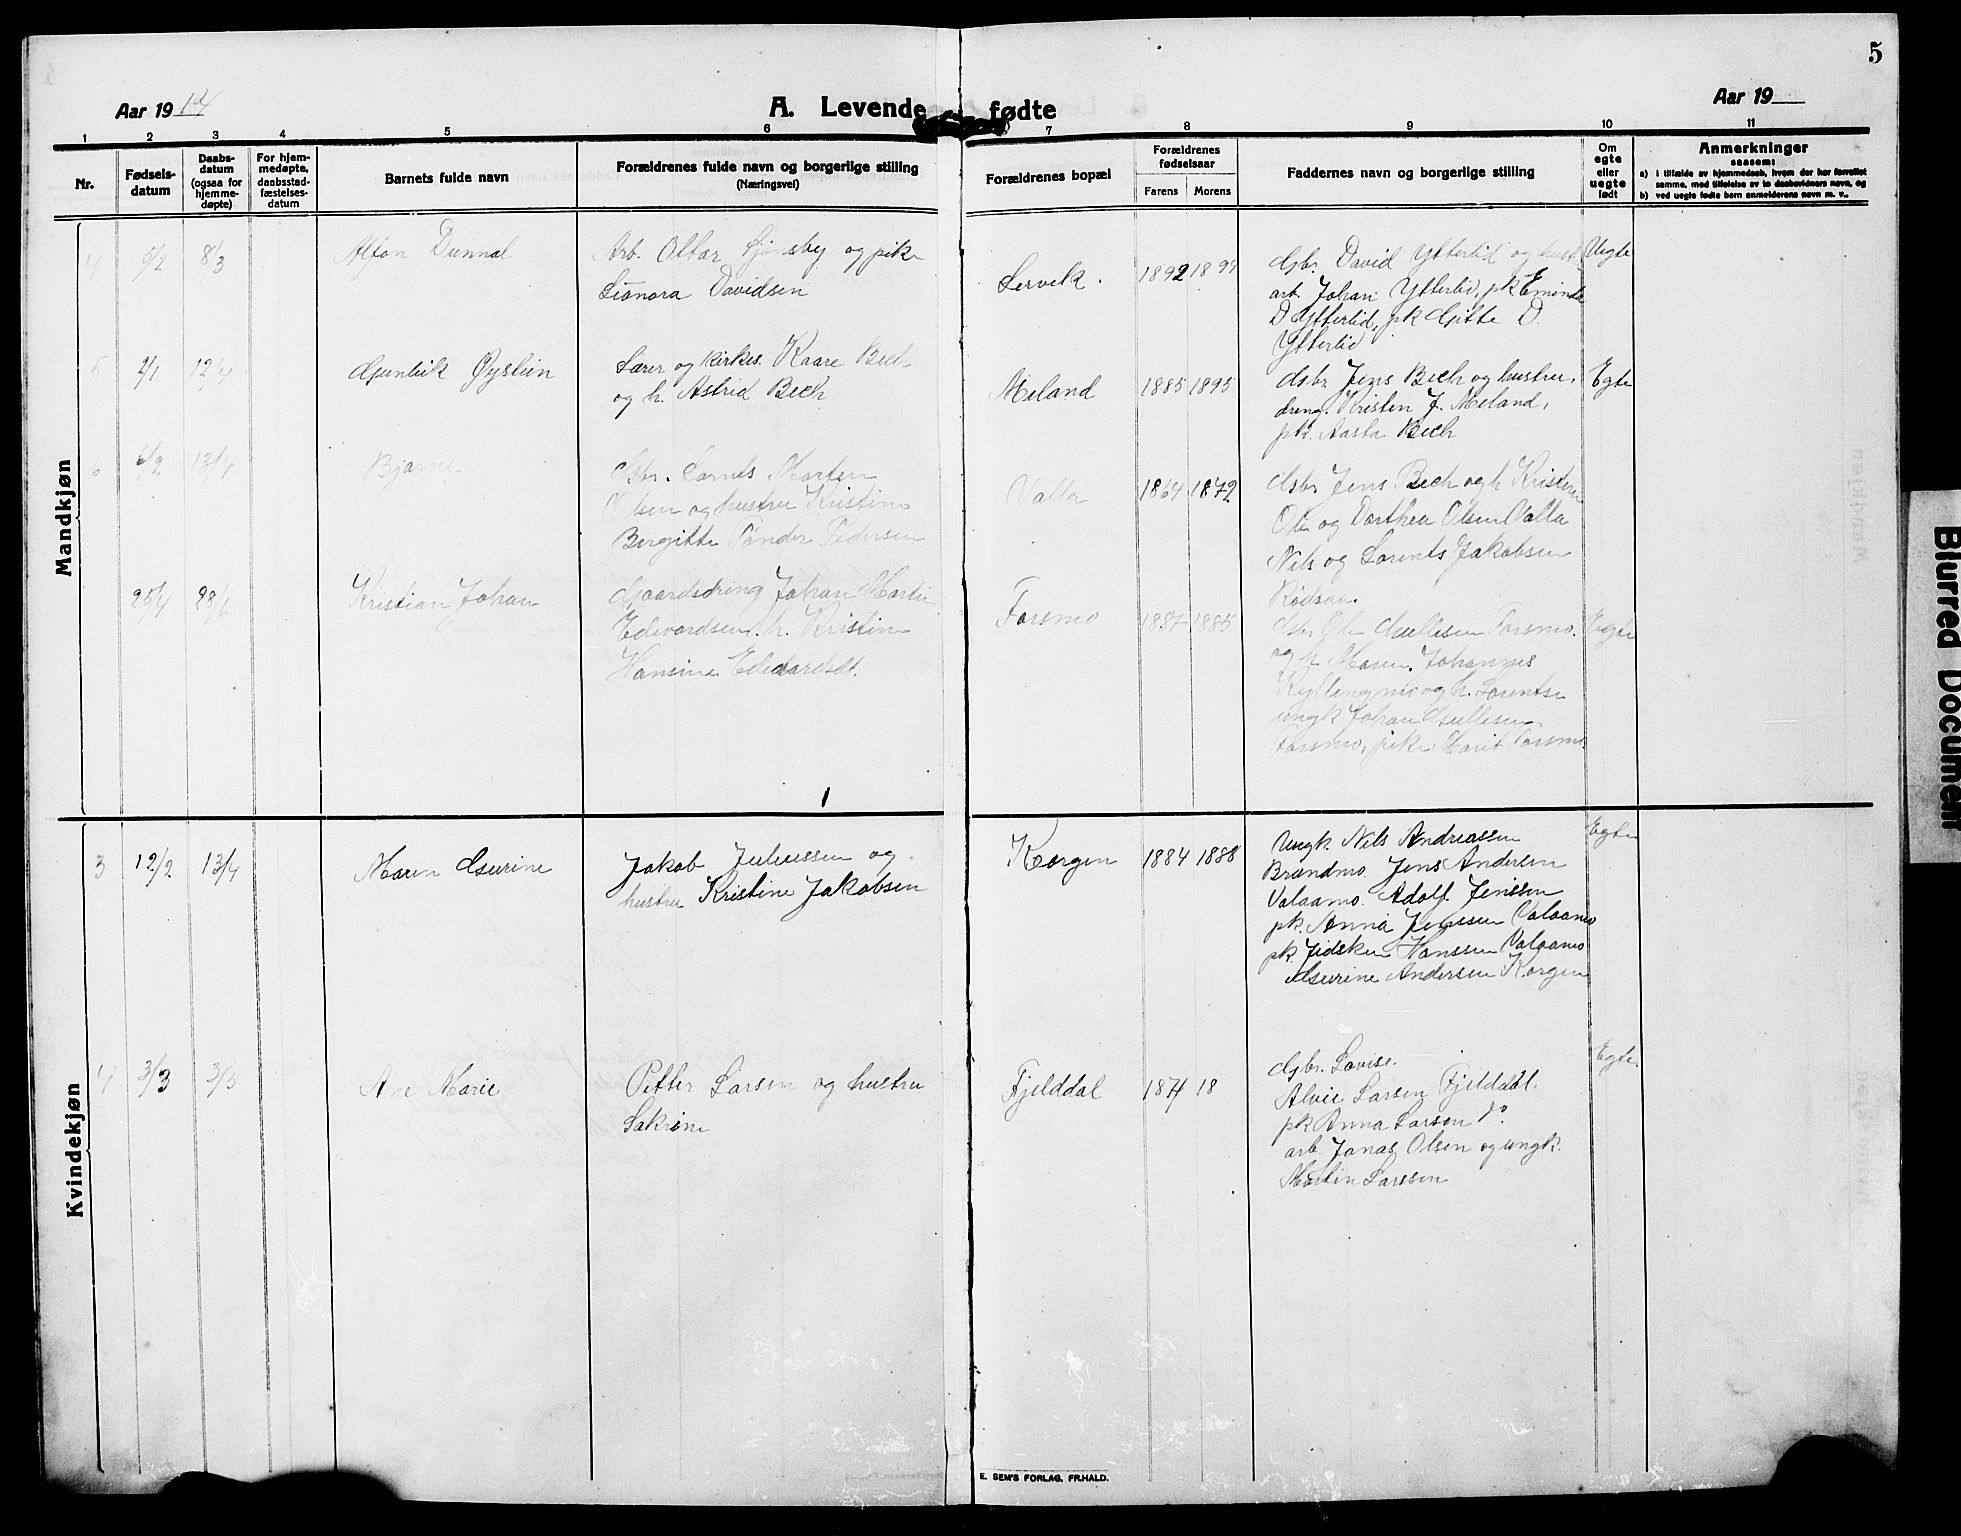 5
Aar 1914
A. Levende fødte
Aar 19
1 2 3 4 5 6 7 8 9 10 11
Nr.
Fødsels-
datum
Daabs-
datum
(ogsaa for
hjemme-
døpte)
For hjem-
medøpte,
daabsstad-
fæstelses-
datum
Barnets fulde navn
Forældrenes fulde navn og borgerlige stilling
(Næringsvei)
Forældrenes bopæl
Forældrenes
fødselsaar
Farens Morens
Faddernes navn og borgerlige stilling
Om
egte
eller
uegte
født
Anmerkninger
saasom:
a) i tilfælde av hjemmedaab, hvem der har forrettet
samme, med tilføielse av to daabsvidners navn, og
b) ved uegte fødte børn anmelderens navn m. v.
Mandkjøn
4 5/2 8/3
Arb. Ottar og pike
Leonora Davidsen
Lervik.
1892
Gbr. David Ytterlid og hust.
arb. Johan Ytterlid, pk Eminda
D Ytterlid, pk Gitte D.
Ytterlid
Uegte
5 2/1 12/4
Øystein
Lærer og kirkes. Kaare Bech
og h. Astrid Bech
Meland
1885 1895
Gbr Jens Bech og hustru,
dreng. Kristen J. Meland,
pk. Aasta Bech
Egte
6 6/2 13/4
Bjarne
Gbr. Morten
Olsen og hustru Kristine
Birgitte Tønder Pedersen
Valla
1864 1872
Gbr Jens Bech og h. Kristine
Ole og Dorthea Olsen Valla
Nils og Lorents Jakobsen
Rødsaa.
25/4 28/6
Kristian Johan
Gaardsdreng Johan Martin
Edvardsen. h. Kristine
Hansine Edvardsdt.
Forsmo
1887 1885
Gbr Ole Forsmo.
og h. Maren. Johannes
Kyllingmo og h. Lorentse
ungk Johan
Forsmo, pike Marit Forsmo
Kvindekjøn
3 12/2 13/4
Maren Gurine
Jakob Juliussen og
hustru Kristine Jakobsen
Korgen
1884 1888
Ungk. Nils Andreassen
Brændmo Jens Andersen
Valaamo. Adolf Jenssen
pk. Anna Jenssen Valaamo
pk. Hanssen Valaamo
Gurine Andersen Korgen
Egte
4 3/3 3/5
Ane Marie
Petter Larsen og hustru
Sakrine
Fjelddal
1871 18
Gbr. Lovise.
Larsen Fjelddal.
pk Anna Larsen do.
arb. Jonas Olsen og ungk.
Martin Larssen
Egte
E. SEM'S FORLAG, FR.HALD.
Blurred Document